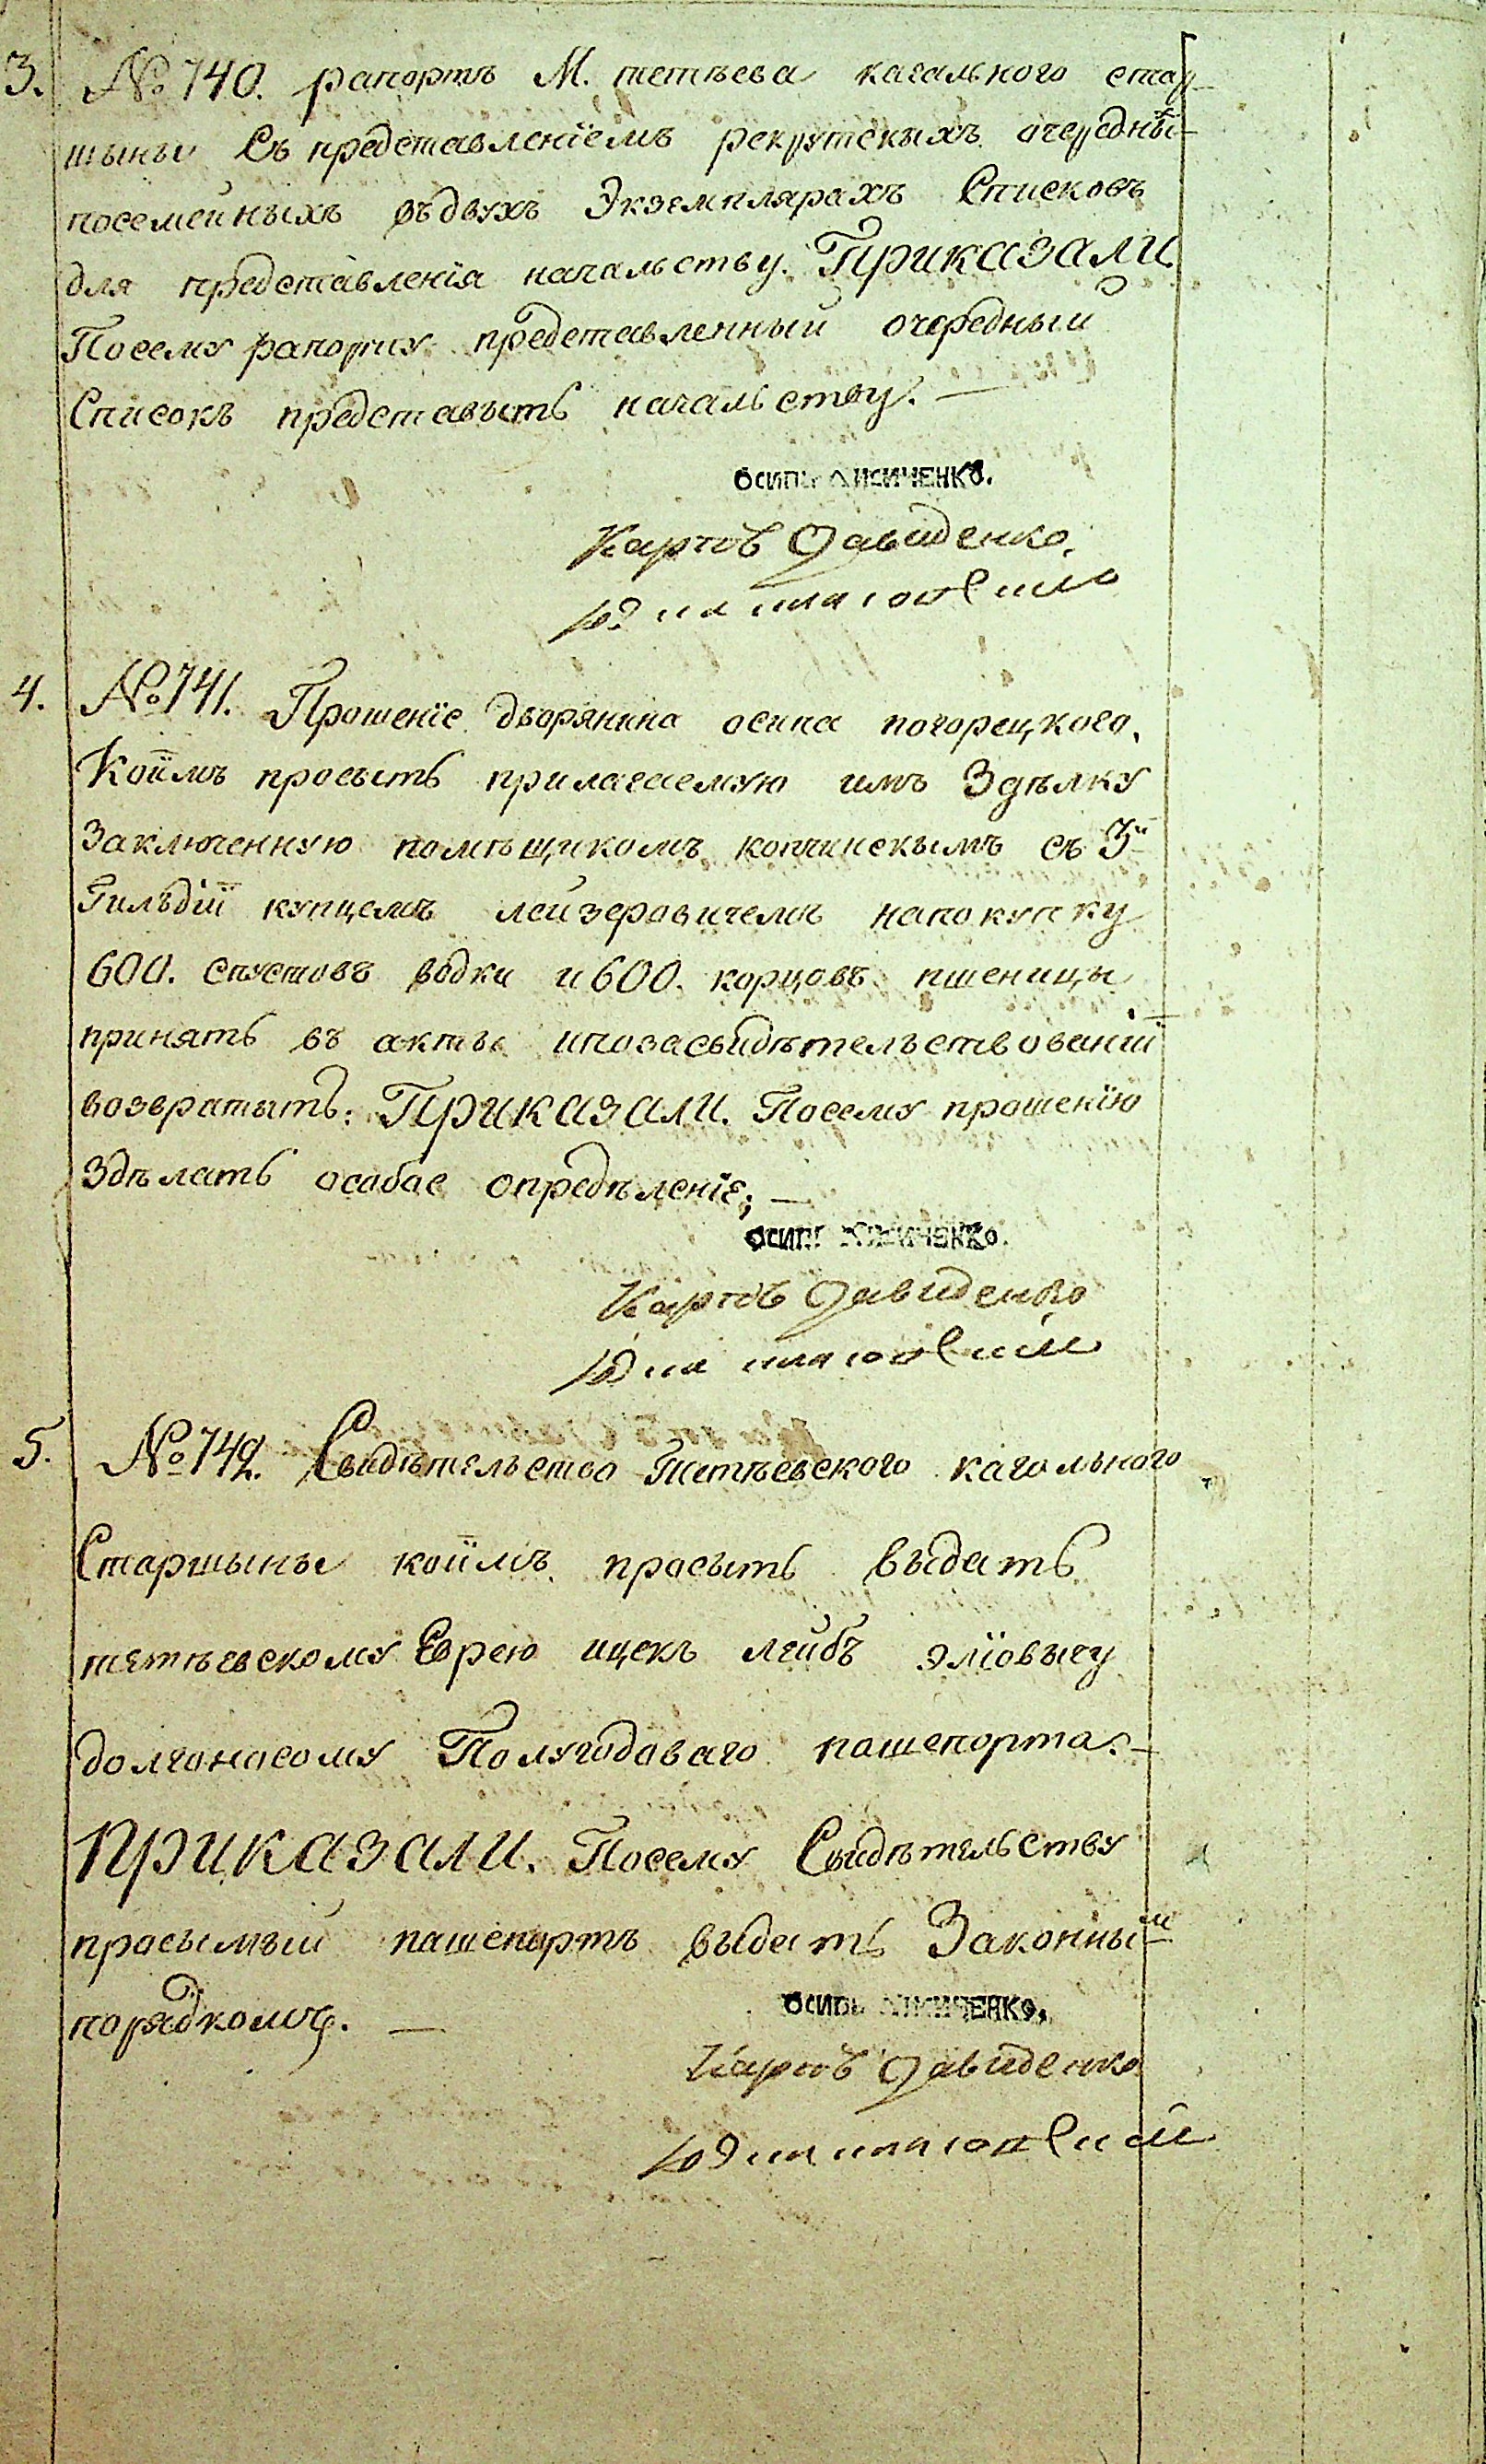 3. № 740. рапортъ М. тетѣева кагального стар-
шыны Съ представленіемъ рекрутскыхъ очередны-х
посемейныхъ въдвухъ Экземплярахъ Списковъ
для представленія начальству. Приказали
Посему рапорту представленный очередный
Списокъ представыть начальству. —
ОСИПЪ ЛИСИЧЕНКО.
Карпъ Давиденко.
4. № 741. Прошеніе дворянина осипа погорецкого,
Коіимъ просыть прилагаемую имъ Здѣлку
Заключенную помѣщикомъ копчинскымъ съ 3й
Гильдіи купцемъ лейзеровичемъ напокупку
600. спустовъ водки и 600. корцовъ пшеницы
принять въ акты ипозасвидѣтельствованіи
возвратыть: Приказали. Посему прошенію
Здѣлать особое опредѣленіе; —
ОСИПЪ ЛИСИЧЕНКО.
Карпъ Давиденко
5. № 742. Свидѣтельство Тетѣевского кагального
Старшыны коіимъ просыть выдать
тетѣевскому Еврею ицекъ лейбъ эліовычу
долгоносому Полугодоваго пашепорта. —
ПРИКАЗАЛИ. Посему Свидѣтельству
просымый пашепортъ выдать Законным
порядкомъ. —
ОСИПЪ ЛИСИЧЕНКО.
Карпъ Давиденко